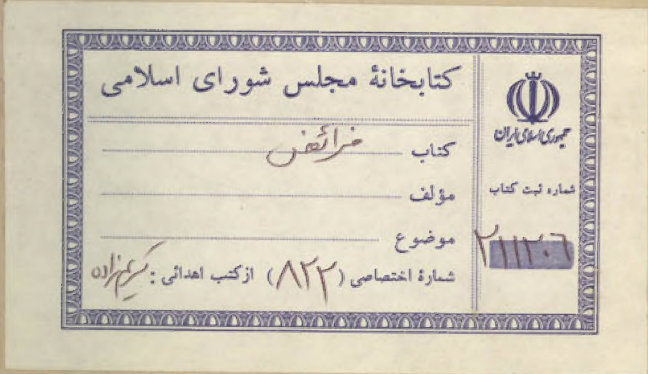 کتابخانهٔ مجلس شورای اسلامی
کتاب فرائض
مؤلف
موضوع
شمارهٔ اختصاصی (۸۲۲) از کتب اهدائی : کریم‌زاده
جمهوری اسلامی ایران
شماره ثبت کتاب
۲۱۱۲۰۶